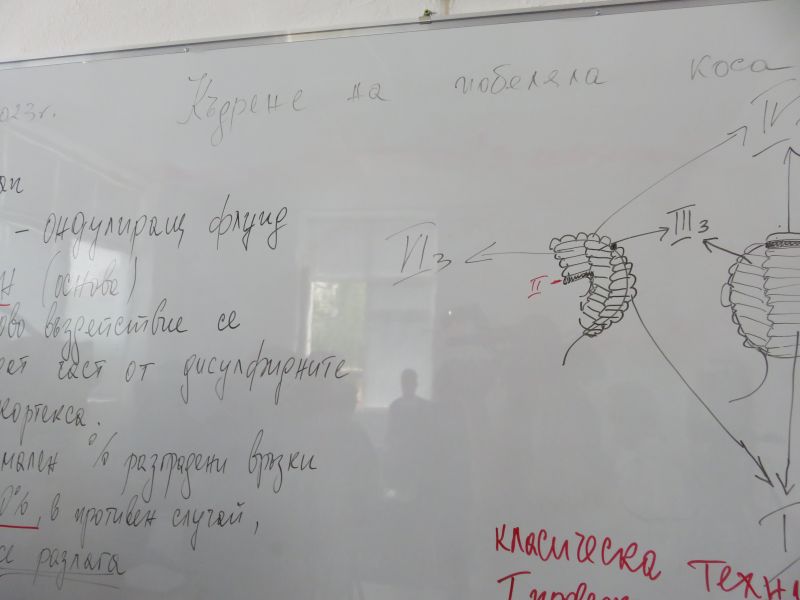 2023г. Къдрене на побеляла коса
ап
- ондулиращ флуид
Н (основа)
ово въздействие се
рет част от дисулфидните
кортекса.
мален % разградени връзки
0%, в противен случай,
се разлага
IV
III з
VI з
II -
I
класическа техни
I провер